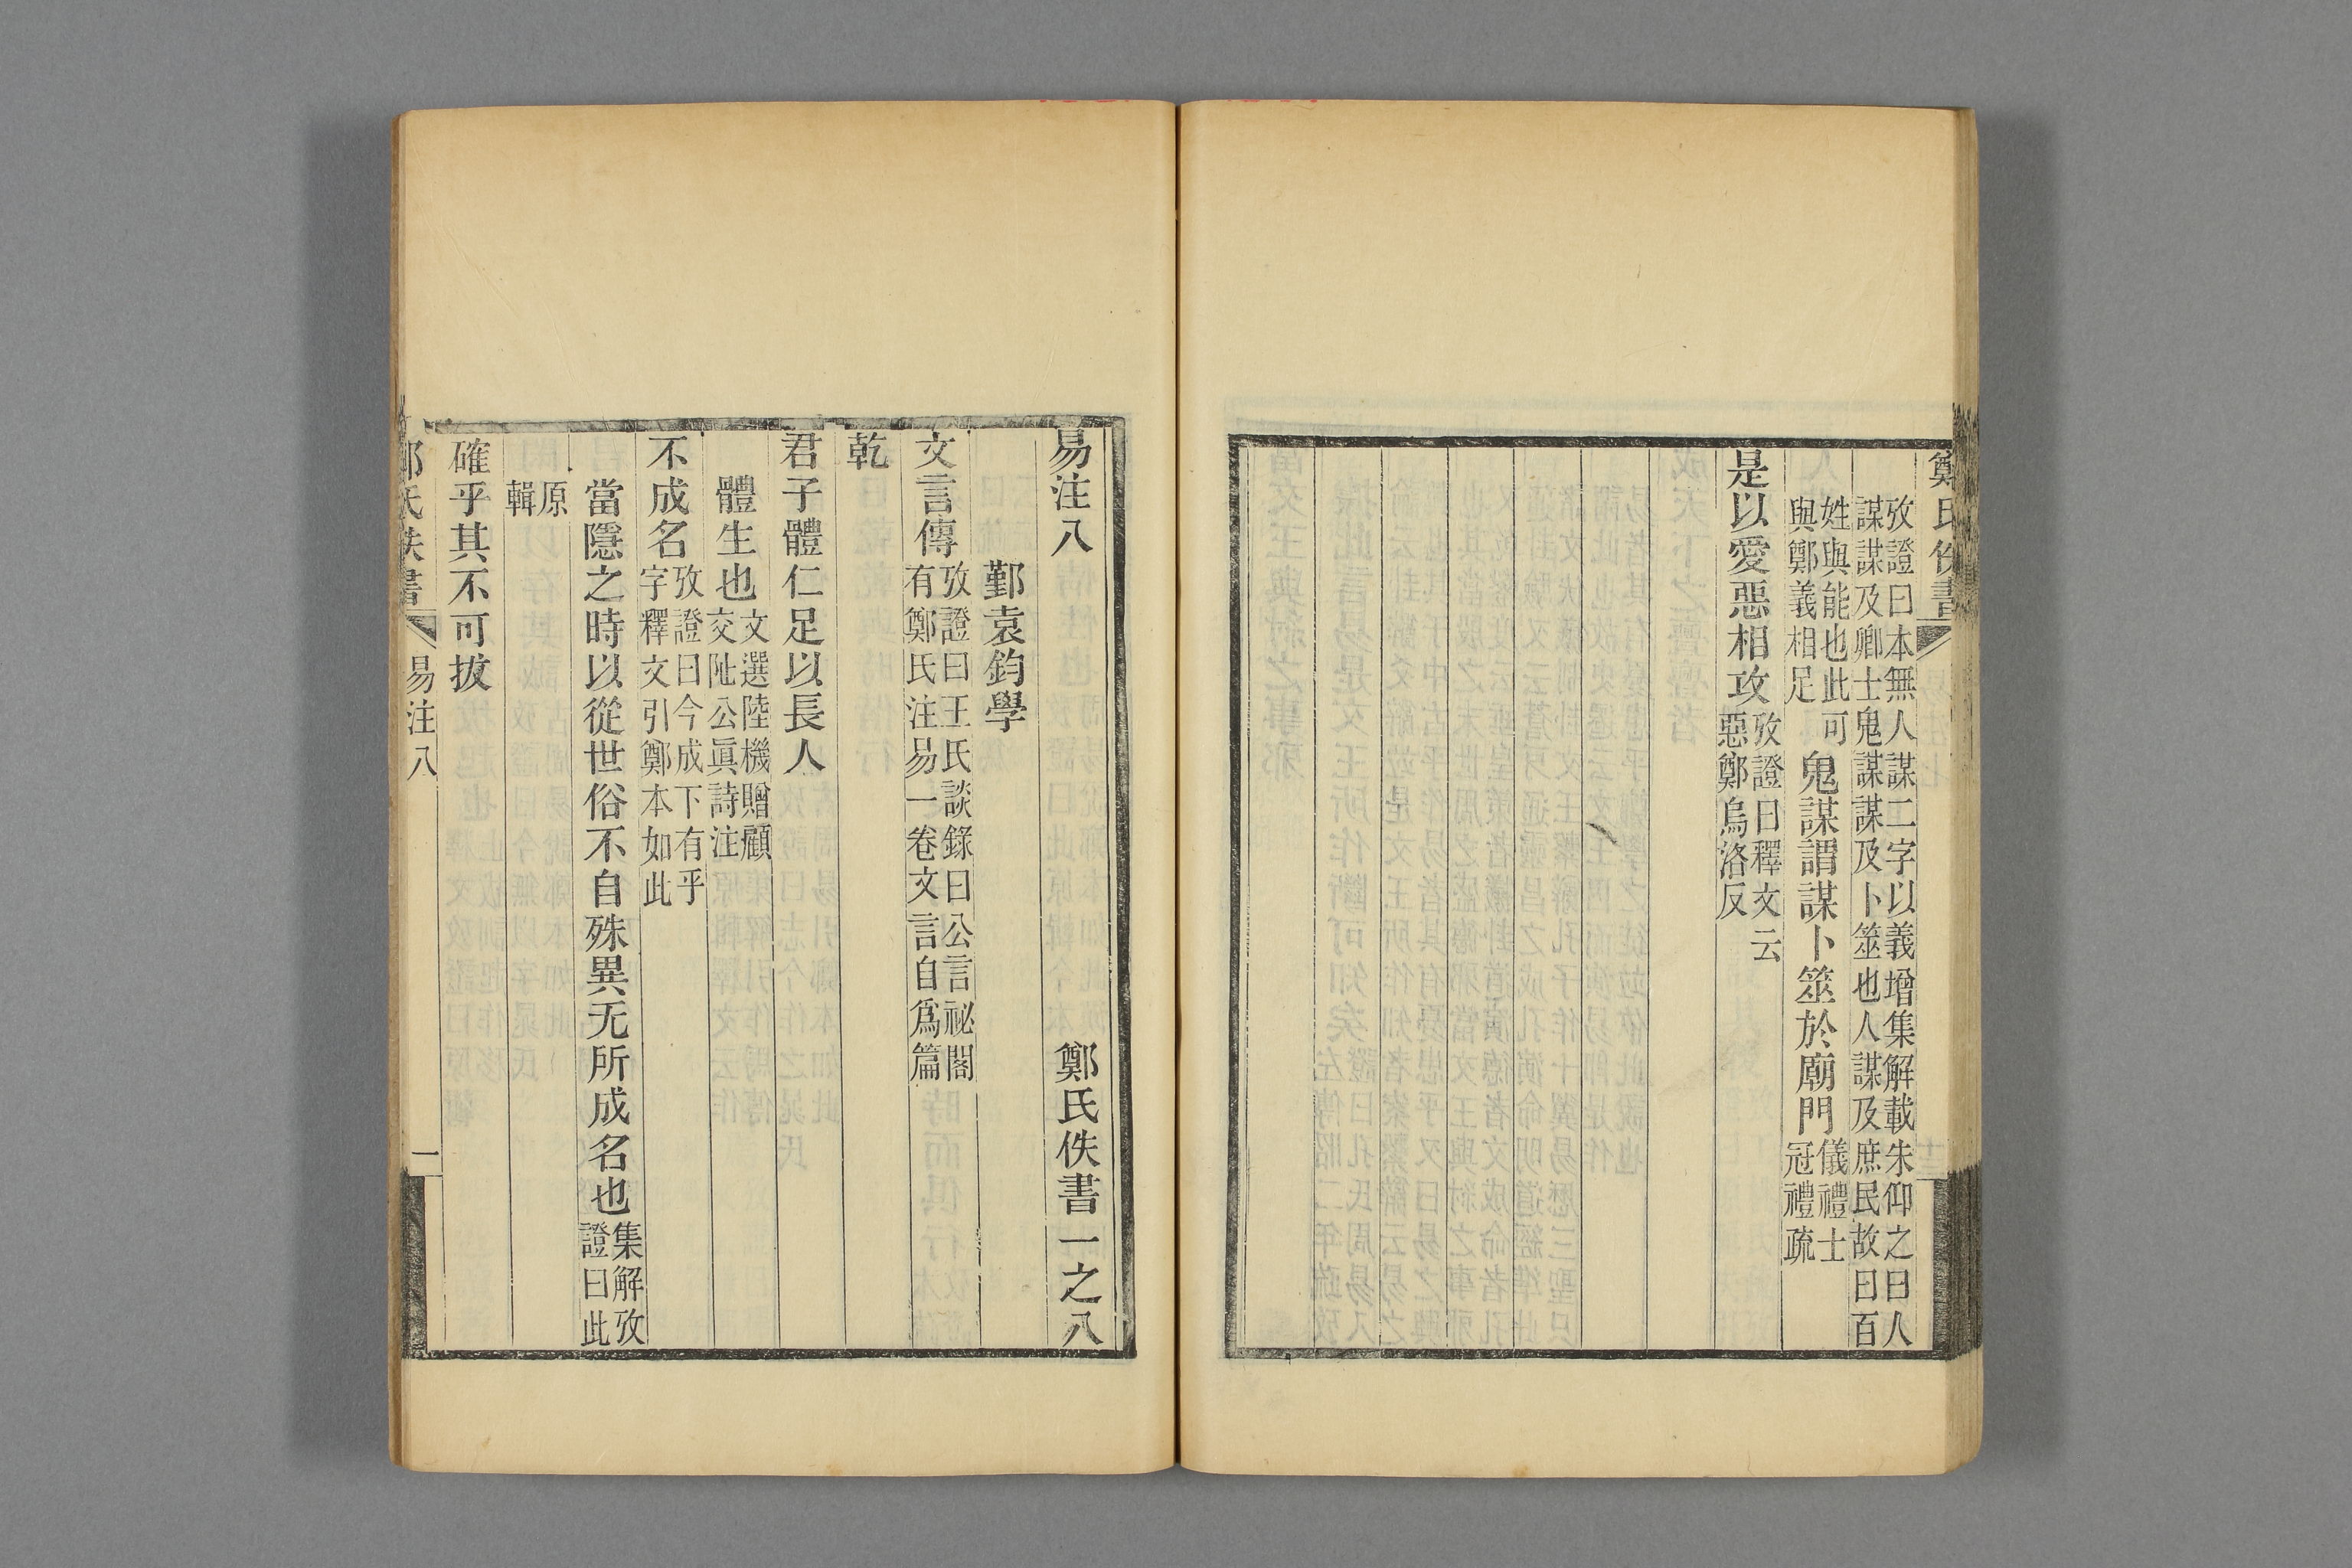 鄭氏佚書
攷證曰本無人謀二字以義增集解載朱仰之曰人
謀謀及卿士鬼謀謀及卜筮也人謀及庶民故曰百
姓與能也此可
與鄭義相足
鬼謀謂謀卜筮於廟門
儀禮士
冠禮疏
是以愛惡相攻
攷證曰釋文云
惡鄭烏洛反
易注八
鄭氏佚書一之八
鄞袁鈞學
文言傳
攷證曰王氏談錄曰公言祕閣
有鄭氏注易一卷文言自爲篇
乾
君子體仁足以長人
體生也
文選陸機贈顧
交阯公眞詩注
不成名
攷證曰今成下有乎
字釋文引鄭本如此
當隱之時以從世俗不自殊異无所成名也
集解攷
證曰此
原
輯
確乎其不可拔
鄭氏佚書
易注八
一